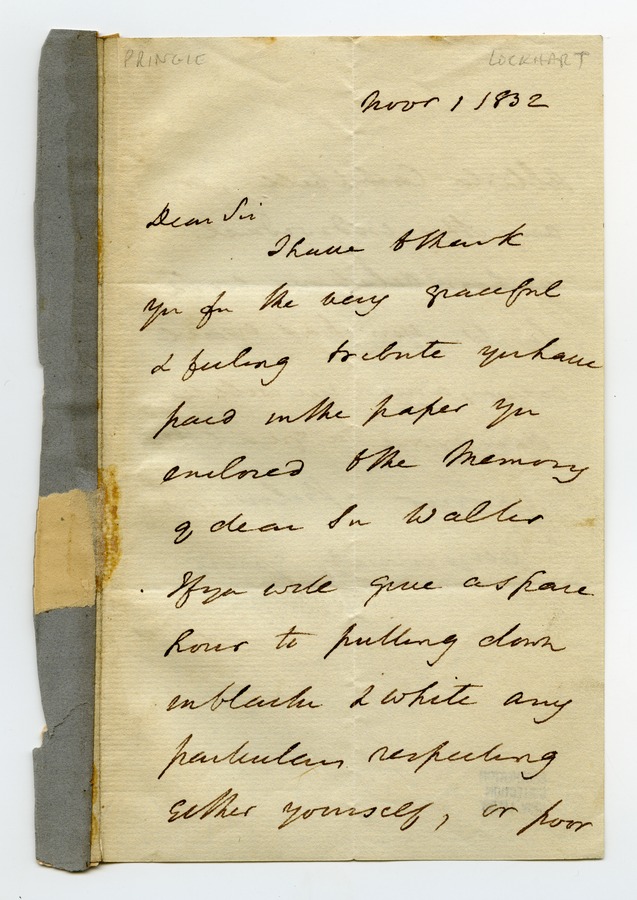 PRINGLE LOCKHART
Novr 1 1832
Dear Sir
I have to thank
yu for the very graceful
& feeling tribute yu have
paid in the paper yu
enclosed to the Memory
of dear Sir Walter
If yu will give a spare
hour to putting down
in black & white any
particulars respecting
Either yourself, or poor